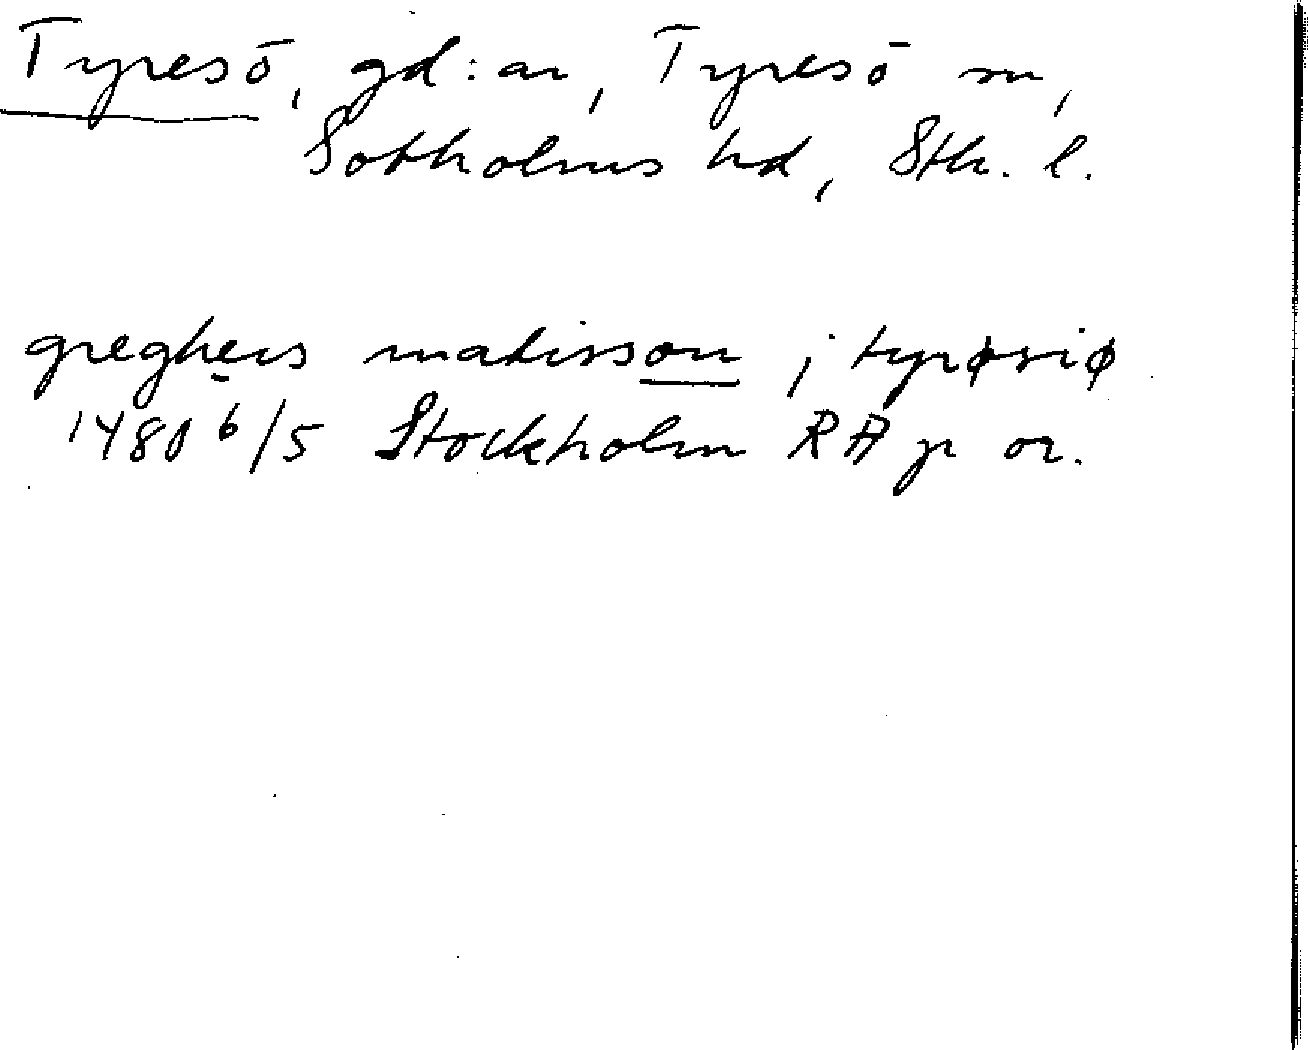 Tyresö, gd:ar, Tyresö sn,
Sotholms hd, Sth. l.
greghers matisson j tyrøsiø
1480 6/5 Stockholm RA p or.